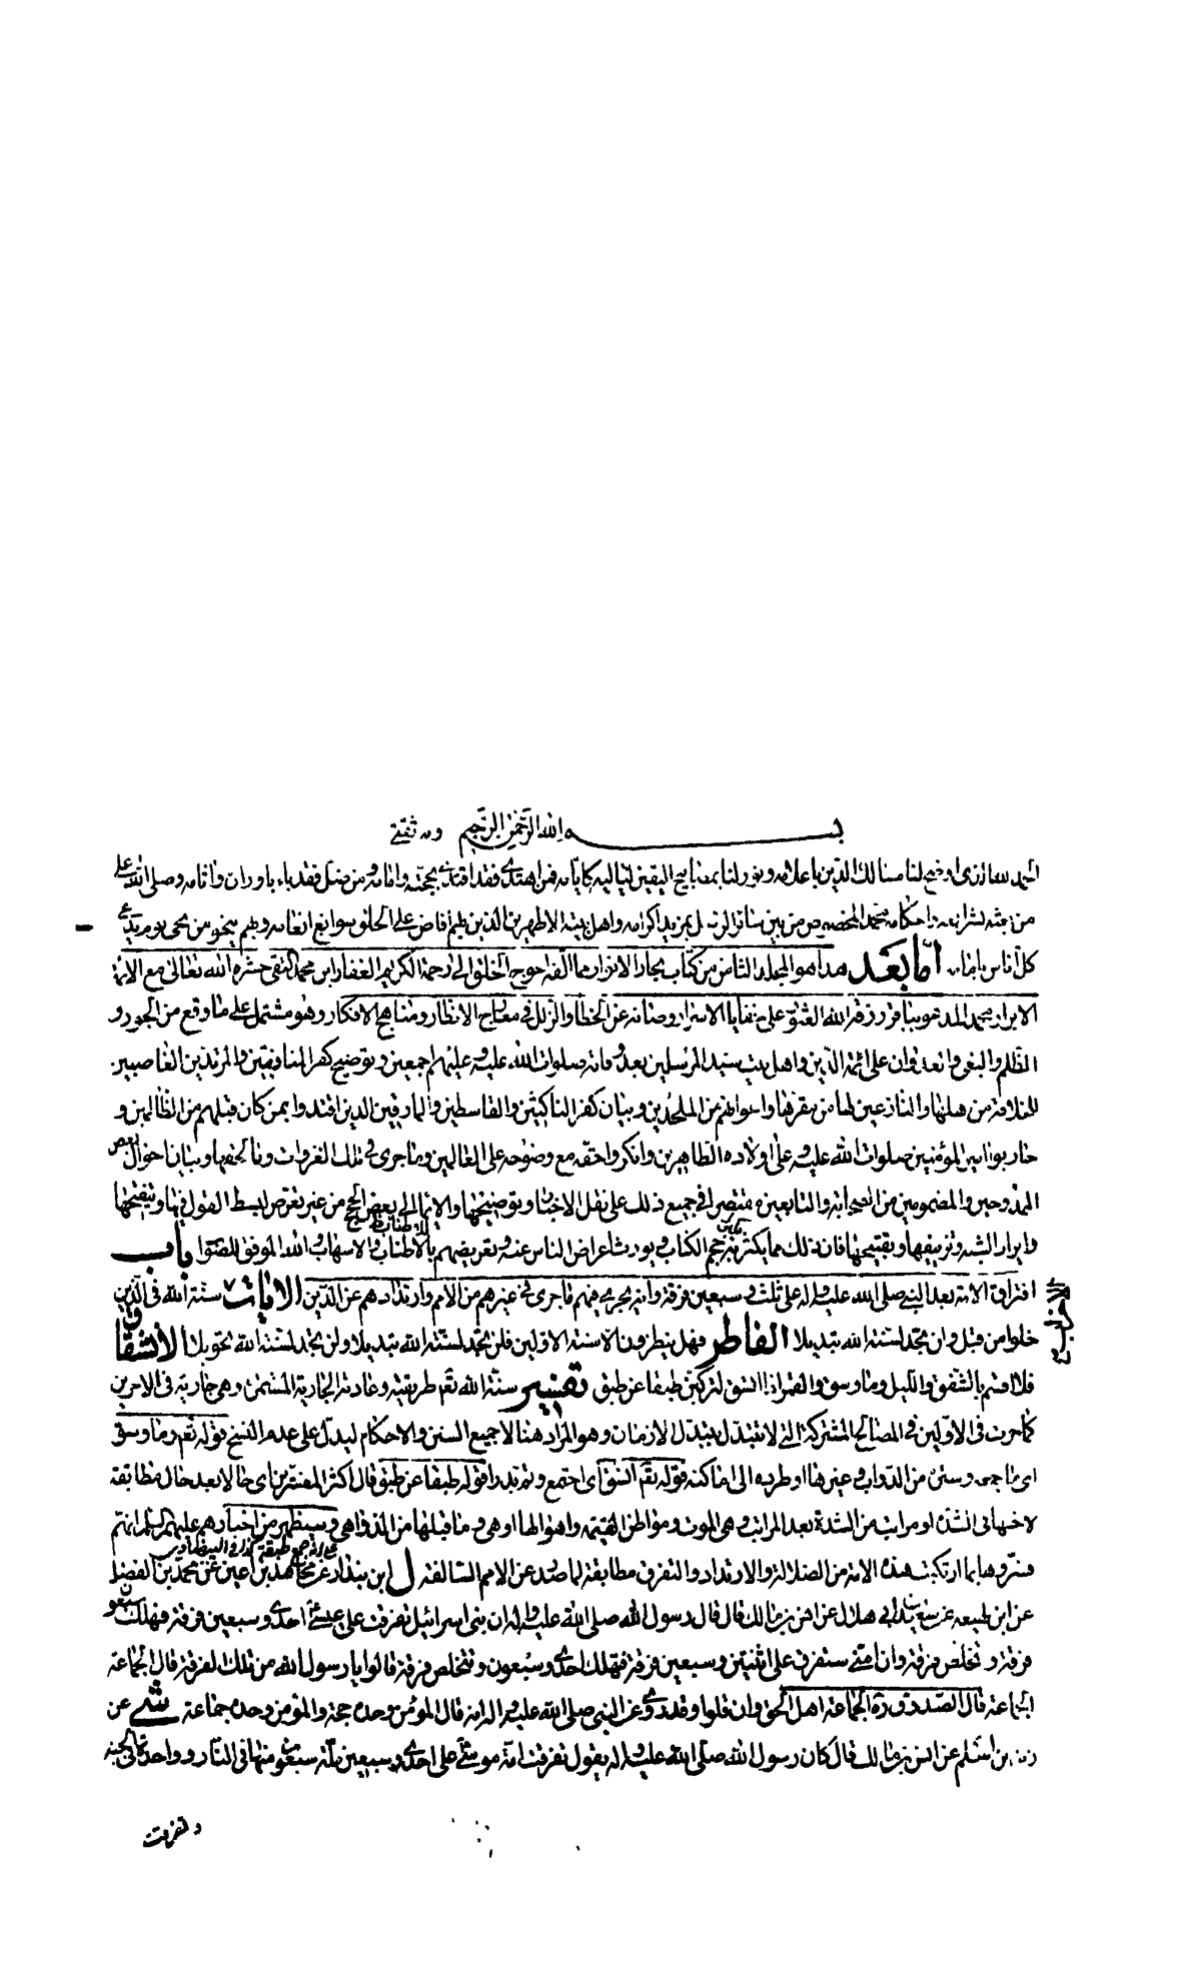 بسم الله الرحمن الرحيم وبه ثقتي
الحمد لله الذي اوضح لنا مسالك الدين باعلامه ونور لنا بمصابيح اليقين لياليه كايامه فمن اهتدى فقد اقتدى بحججه وامامه ومن ضل فقد باء باوزاره واثامه وصلى الله على
من بعثه بشرائعه واحكامه محمد المخصوص من بين سائر الرسل بمزيد اكرامه واهل بيته الاطهرين الذين بهم افاض على الخلق سوابغ انعامه وبهم ينجو من نجى يوم يدعى
كل اناس بامامه اما بعد هذا هو المجلد الثامن من كتاب بحار الانوار مما الفه احوج الخلق الى رحمة الكريم الغفار ابن محمد التقي حشره الله تعالى مع الائمة
الابرار محمد المدعو بباقر رزقه الله العثور على خفايا الاسرار وصانه عن الخطا والزلل في معارج الانظار ومناهج الافكار وهو مشتمل على ما وقع من الجور و
الظلم والبغي والعدوان على ائمة الدين واهل بيت سيد المرسلين بعد وفاته صلوات الله عليه وعليهم اجمعين وتوضيح كفر المنافقين والمرتدين الغاصبين
للخلافة من اهلها والنازعين لها من مقرها واعوانهم من الملحدين وبيان كفر الناكثين والقاسطين والمارقين الذين اقتدوا بمن كان قبلهم من الظالمين و
حاربوا امير المؤمنين صلوات الله عليه وعلى اولاده الطاهرين وانكروا حقه مع وضوحه على العالمين وما جرى في تلك الغزوات وما لحقها وبيان احوال بعض
الممدوحين والمذمومين من الصحابة والتابعين مقتصرا في جميع ذلك على نقل الاخبار وتوضيحها والايماء الى بعض الحجج من غير تعرض لبسط القول فيها وتنقيحها
وايراد الشبه وتزييفها وتقبيحها فان ذلك مما يكثر به حجم الكتاب ويورث اعراض الناس عنه وتعريضهم بالاطناب والاسهاب والله الموفق للصواب باب
افتراق الامة بعد النبي صلى الله عليه واله على ثلث وسبعين فرقة وانه يجري فيهم ما جرى في غيرهم من الامم وارتدادهم عن الدين الايات سنة الله في الذين
خلوا من قبل ولن تجد لسنة الله تبديلا الفاطر فهل ينظرون الا سنة الاولين فلن تجد لسنة الله تبديلا ولن تجد لسنة الله تحويلا الانشقاق
فلا اقسم بالشفق والليل وما وسق والقمر اذا اتسق لتركبن طبقا عن طبق تفسير سنة الله تعم طريقته وعادته الجارية المستمرة وهي جارية في الاخرين
كما جرت في الاولين في المصالح المشتركة التي لا تتبدل بتبدل الازمان وهو المراد هنا لا جميع السنن والاحكام ليدل على عدم النسخ قوله تعم وما وسق
اي ما جمعه وستره من الدواب وغيرها او طرده الى اماكنه قوله تعم اتسق اي اجتمع وتم بدرا قوله طبقا عن طبق قال اكثر المفسرين اي حالا بعد حال مطابقة
لاختها في الشدة او مراتب من الشدة بعد المراتب وهي الموت ومواطن القيمة واهوالها او هي وما قبلها من الدواهي وسيظهر من اخبارهم عليهم السلم انهم
فسروها بما ارتكبته هذه الامة من الضلالة والارتداد والتفرق مطابقة لما صدر عن الامم السالفة ل ابن بندار عن مجاهد بن اعين عن محمد بن الفضل
عن ابن لهيعة عن سعيد بن ابي هلال عن انس بن مالك قال قال رسول الله صلى الله عليه واله ان بني اسرائيل تفرقت على عيسى احدى وسبعين فرقة فهلك سبعون
فرقة وتخلص فرقة وان امتي ستفرق على اثنتين وسبعين فرقة فهلك احدى وسبعون وتتخلص فرقة قالوا يا رسول الله من تلك الفرقة قال الجماعة
الجماعة قال الصدوق ره الجماعة اهل الحق وان قلوا وقد روى عن النبي صلى الله عليه واله انه قال المؤمن وحده حجة والمؤمن وحده جماعة شى عن
زيد بن اسلم عن انس بن مالك قال كان رسول الله صلى الله عليه واله يقول تفرقت امة موسى على احدى وسبعين ملة سبعون منها في النار وواحدة في الجنة
وتفرقت